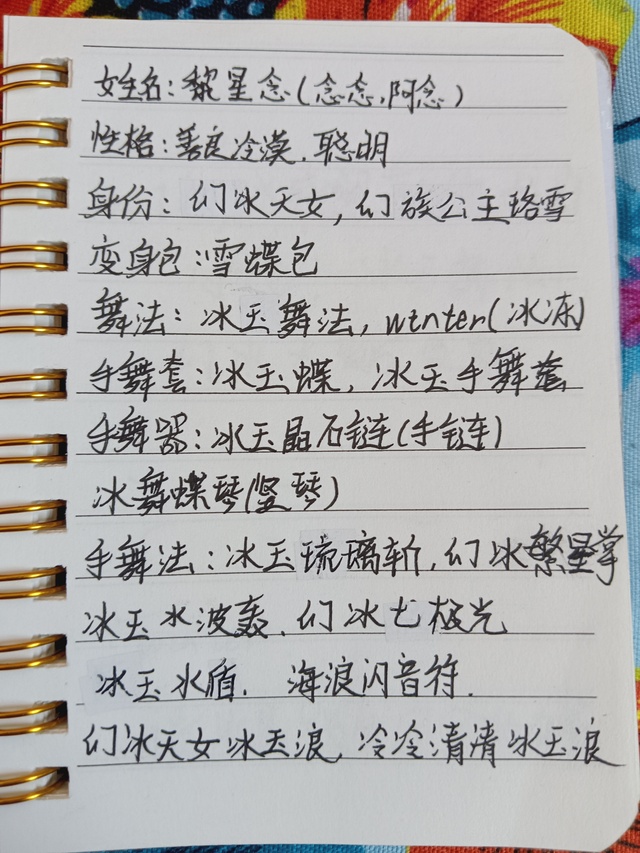 姓名：黎星念（念念，阿念）
性格：善良冷漠．聪明
身份：幻冰天女，幻族公主珞雪
变身包：雪蝶包
舞法：冰玉舞法，winter（冰冻）
手舞套：冰玉蝶，冰玉手舞套
手舞器：冰玉晶石链（手链）
冰舞蝶琴（竖琴）
手舞法：冰玉琉璃斩，幻冰繁星掌
冰玉水波轰．幻冰七极光
冰玉水盾．海浪闪音符．
幻冰天女冰玉浪，冷冷清清冰玉浪